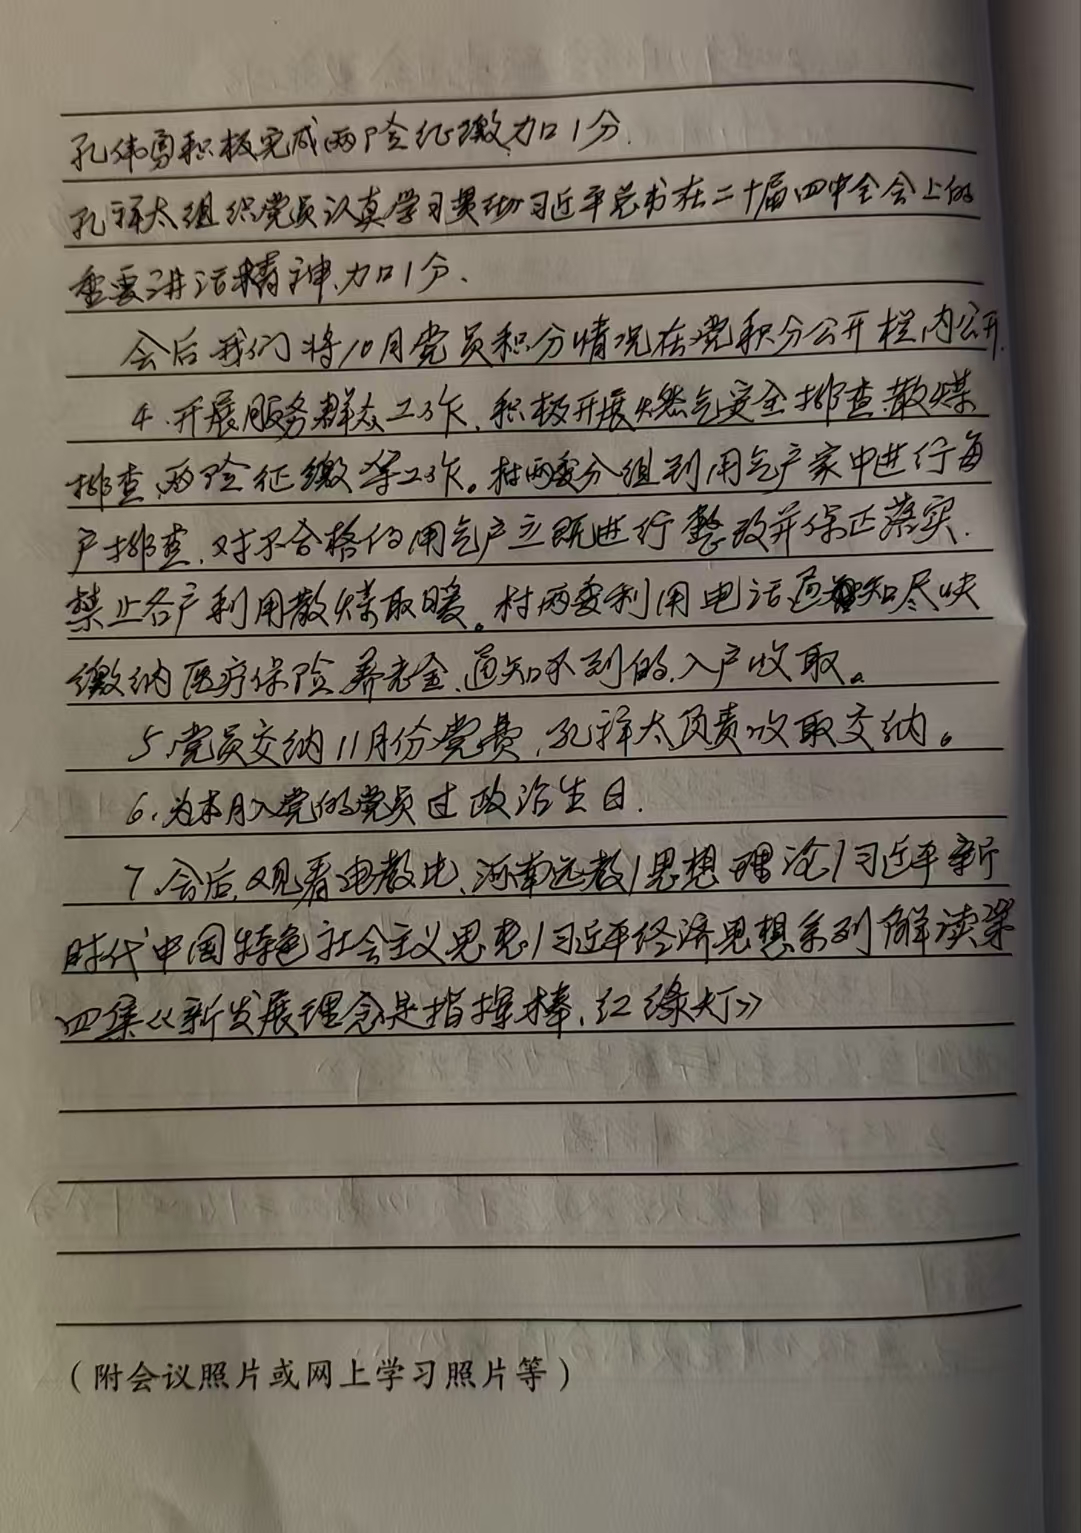 孔伟勇积极完成两险征缴,加1分.
孔祥太组织党员认真学习贯彻习近平总书在二十届四中全会上的
重要讲话精神,加1分、
会后我们将10月党员积分情况在党积分公开栏内公开.
4、开展服务群众工作、积极开展燃气安全排查、散煤
排查、两险征缴等工作。村两委分组到用气户家中进行每
户排查,对不合格的用气户立既进行整改并保正落实.
禁止各户利用散煤取暖。村两委利用电话通知尽快
缴纳医疗保险、养老金、通知不到的,入户收取。
5、党员交纳11月份党费,孔祥太负责收取交纳。
6、为本月入党的党员过政治生日.
7、会后,观看电教比、河南远教/思想理论/习近平新
时代中国特色社会主义思想/习近平经济思想系列解读第
四集《新发展理念是指挥棒、红绿灯》
(附会议照片或网上学习照片等)